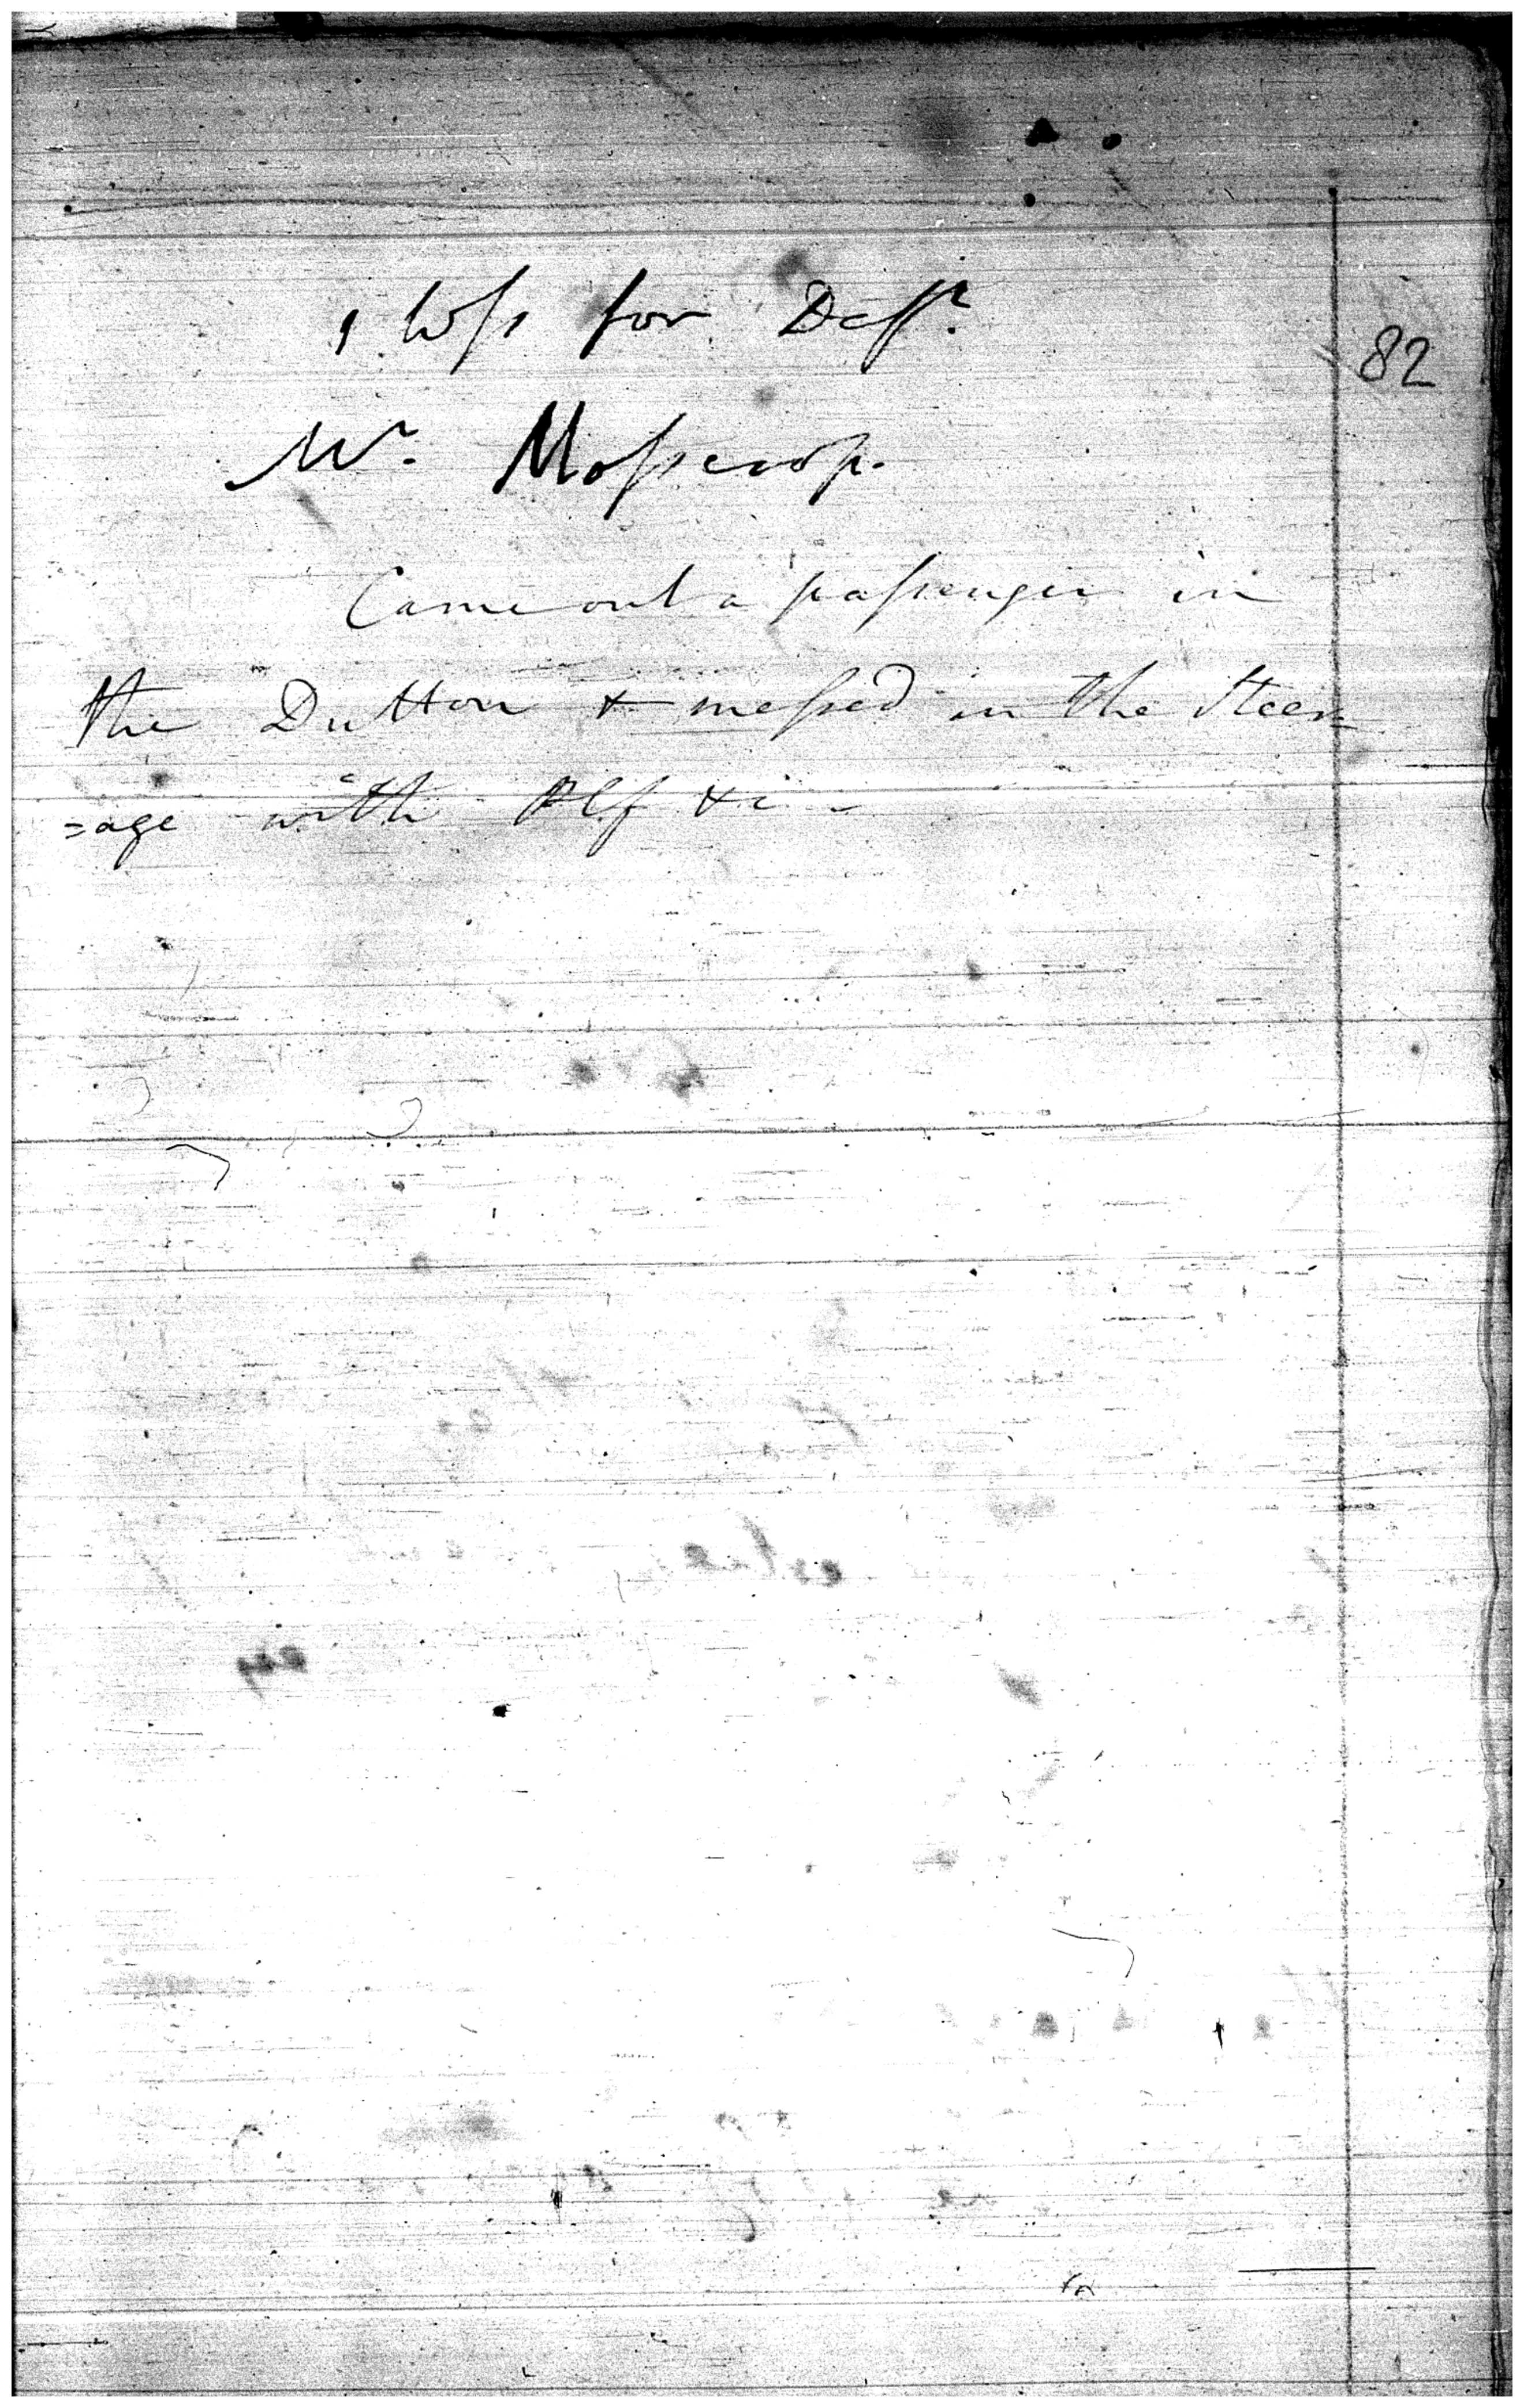 1 Wss for Deft.
82
Mr. Mosscrop.
Came out a passenger in
the Dutton & messed in the Steer
=age with Plf &c -